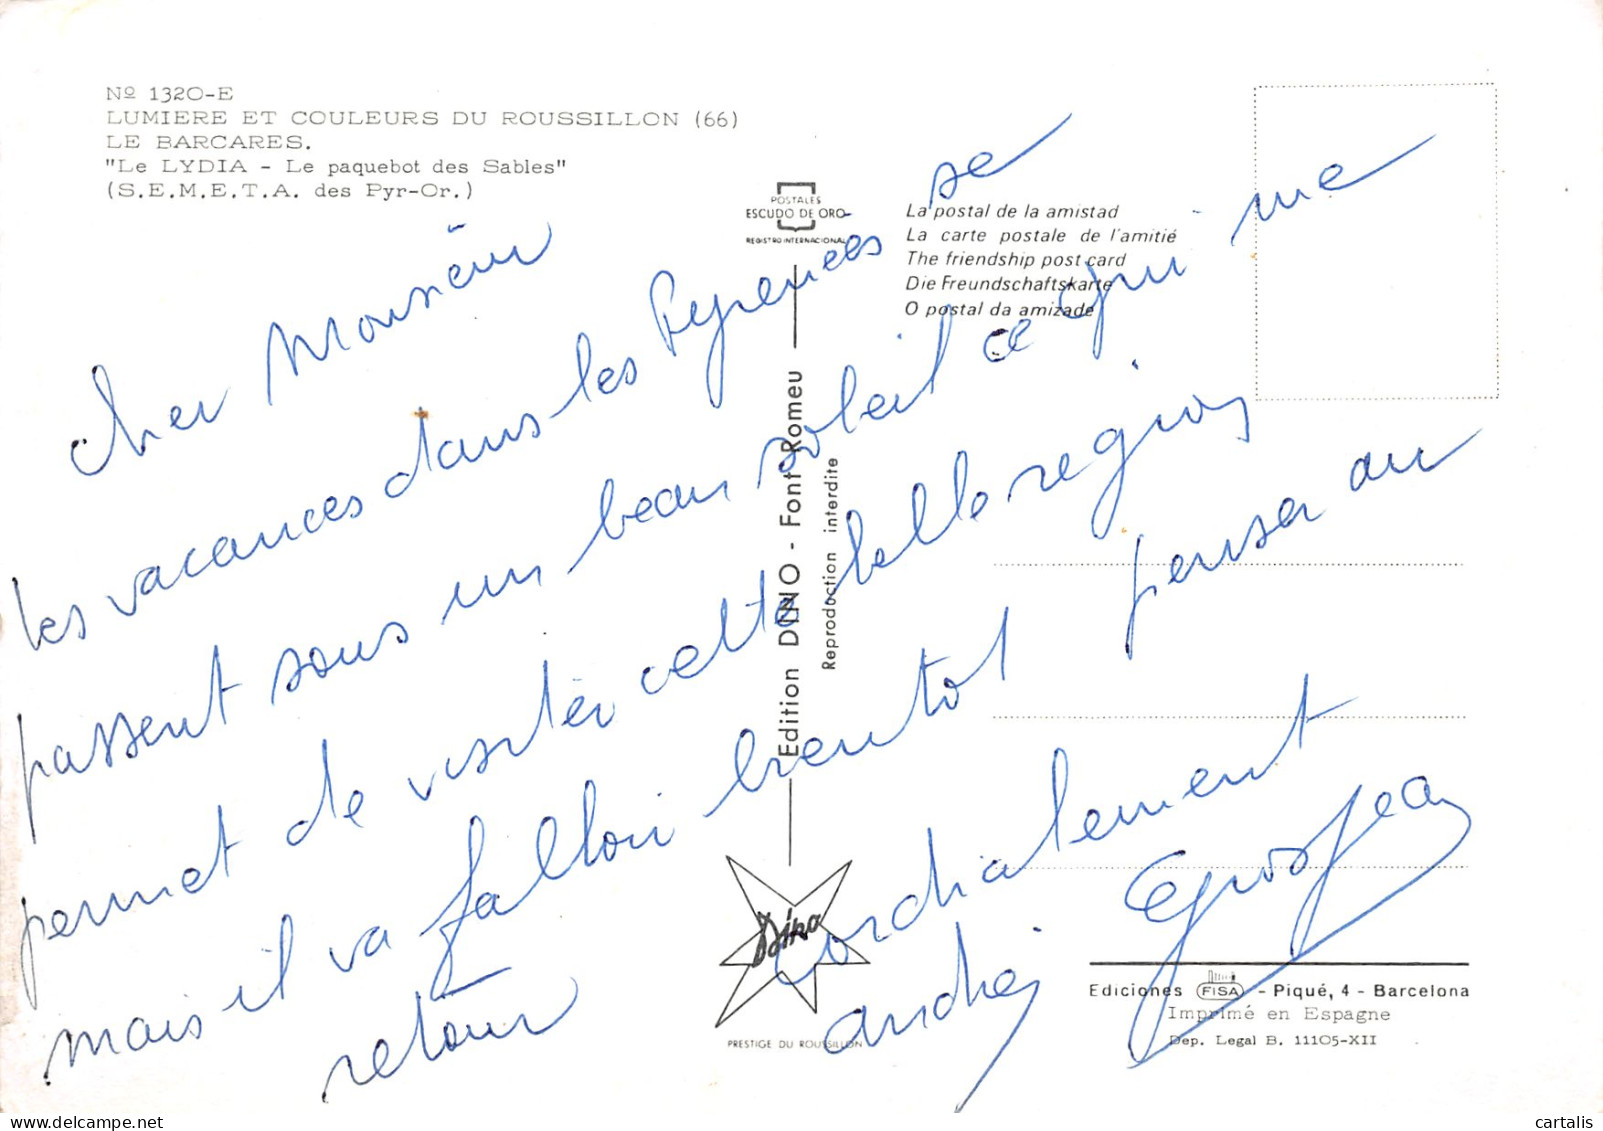 Nº 1320-E
LUMIERE ET COULEURS DU ROUSSILLON (66)
LE BARCARES.
"Le LYDIA - Le paquebot des Sables"
(S.E.M.E.T.A. des Pyr-Or.)
POSTALES
ESCUDO DE ORO
REGISTRO INTERNACIONAL
La postal de la amistad
La carte postale de l'amitié
The friendship post card
Die Freundschaftskarte
O postal da amizade
Cher Monsieur
les vacances dans les Pyrenees se
passent sous un beau soleil ce qui me
permet de visiter cette belle region
mais il va falloir bientot penser au
retour
Cordialement
André Grosjean
Edition DINO - Font Romeu
Reproduction interdite
Dino
PRESTIGE DU ROUSSILLON
Ediciones FISA - Piqué, 4 - Barcelona
Imprimé en Espagne
Dep. Legal B. 11105-XII
delcampe.net
cartalis